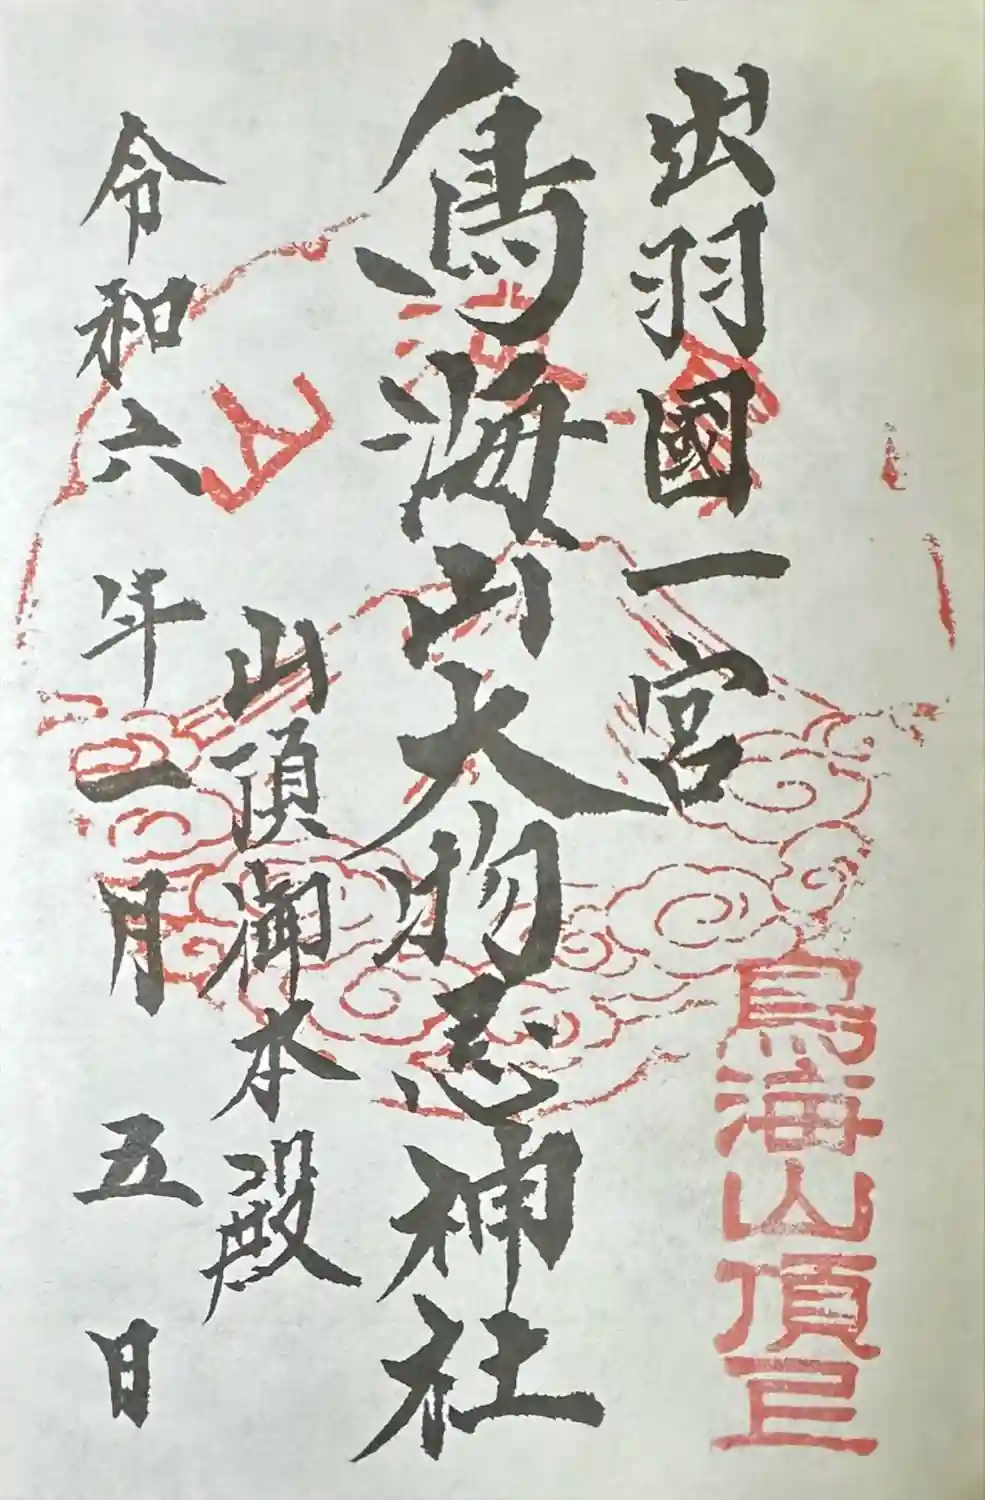 鳥海山頂
出羽國一宮
鳥海山大物忌神社
山頂御本殿
令和六年一月五日